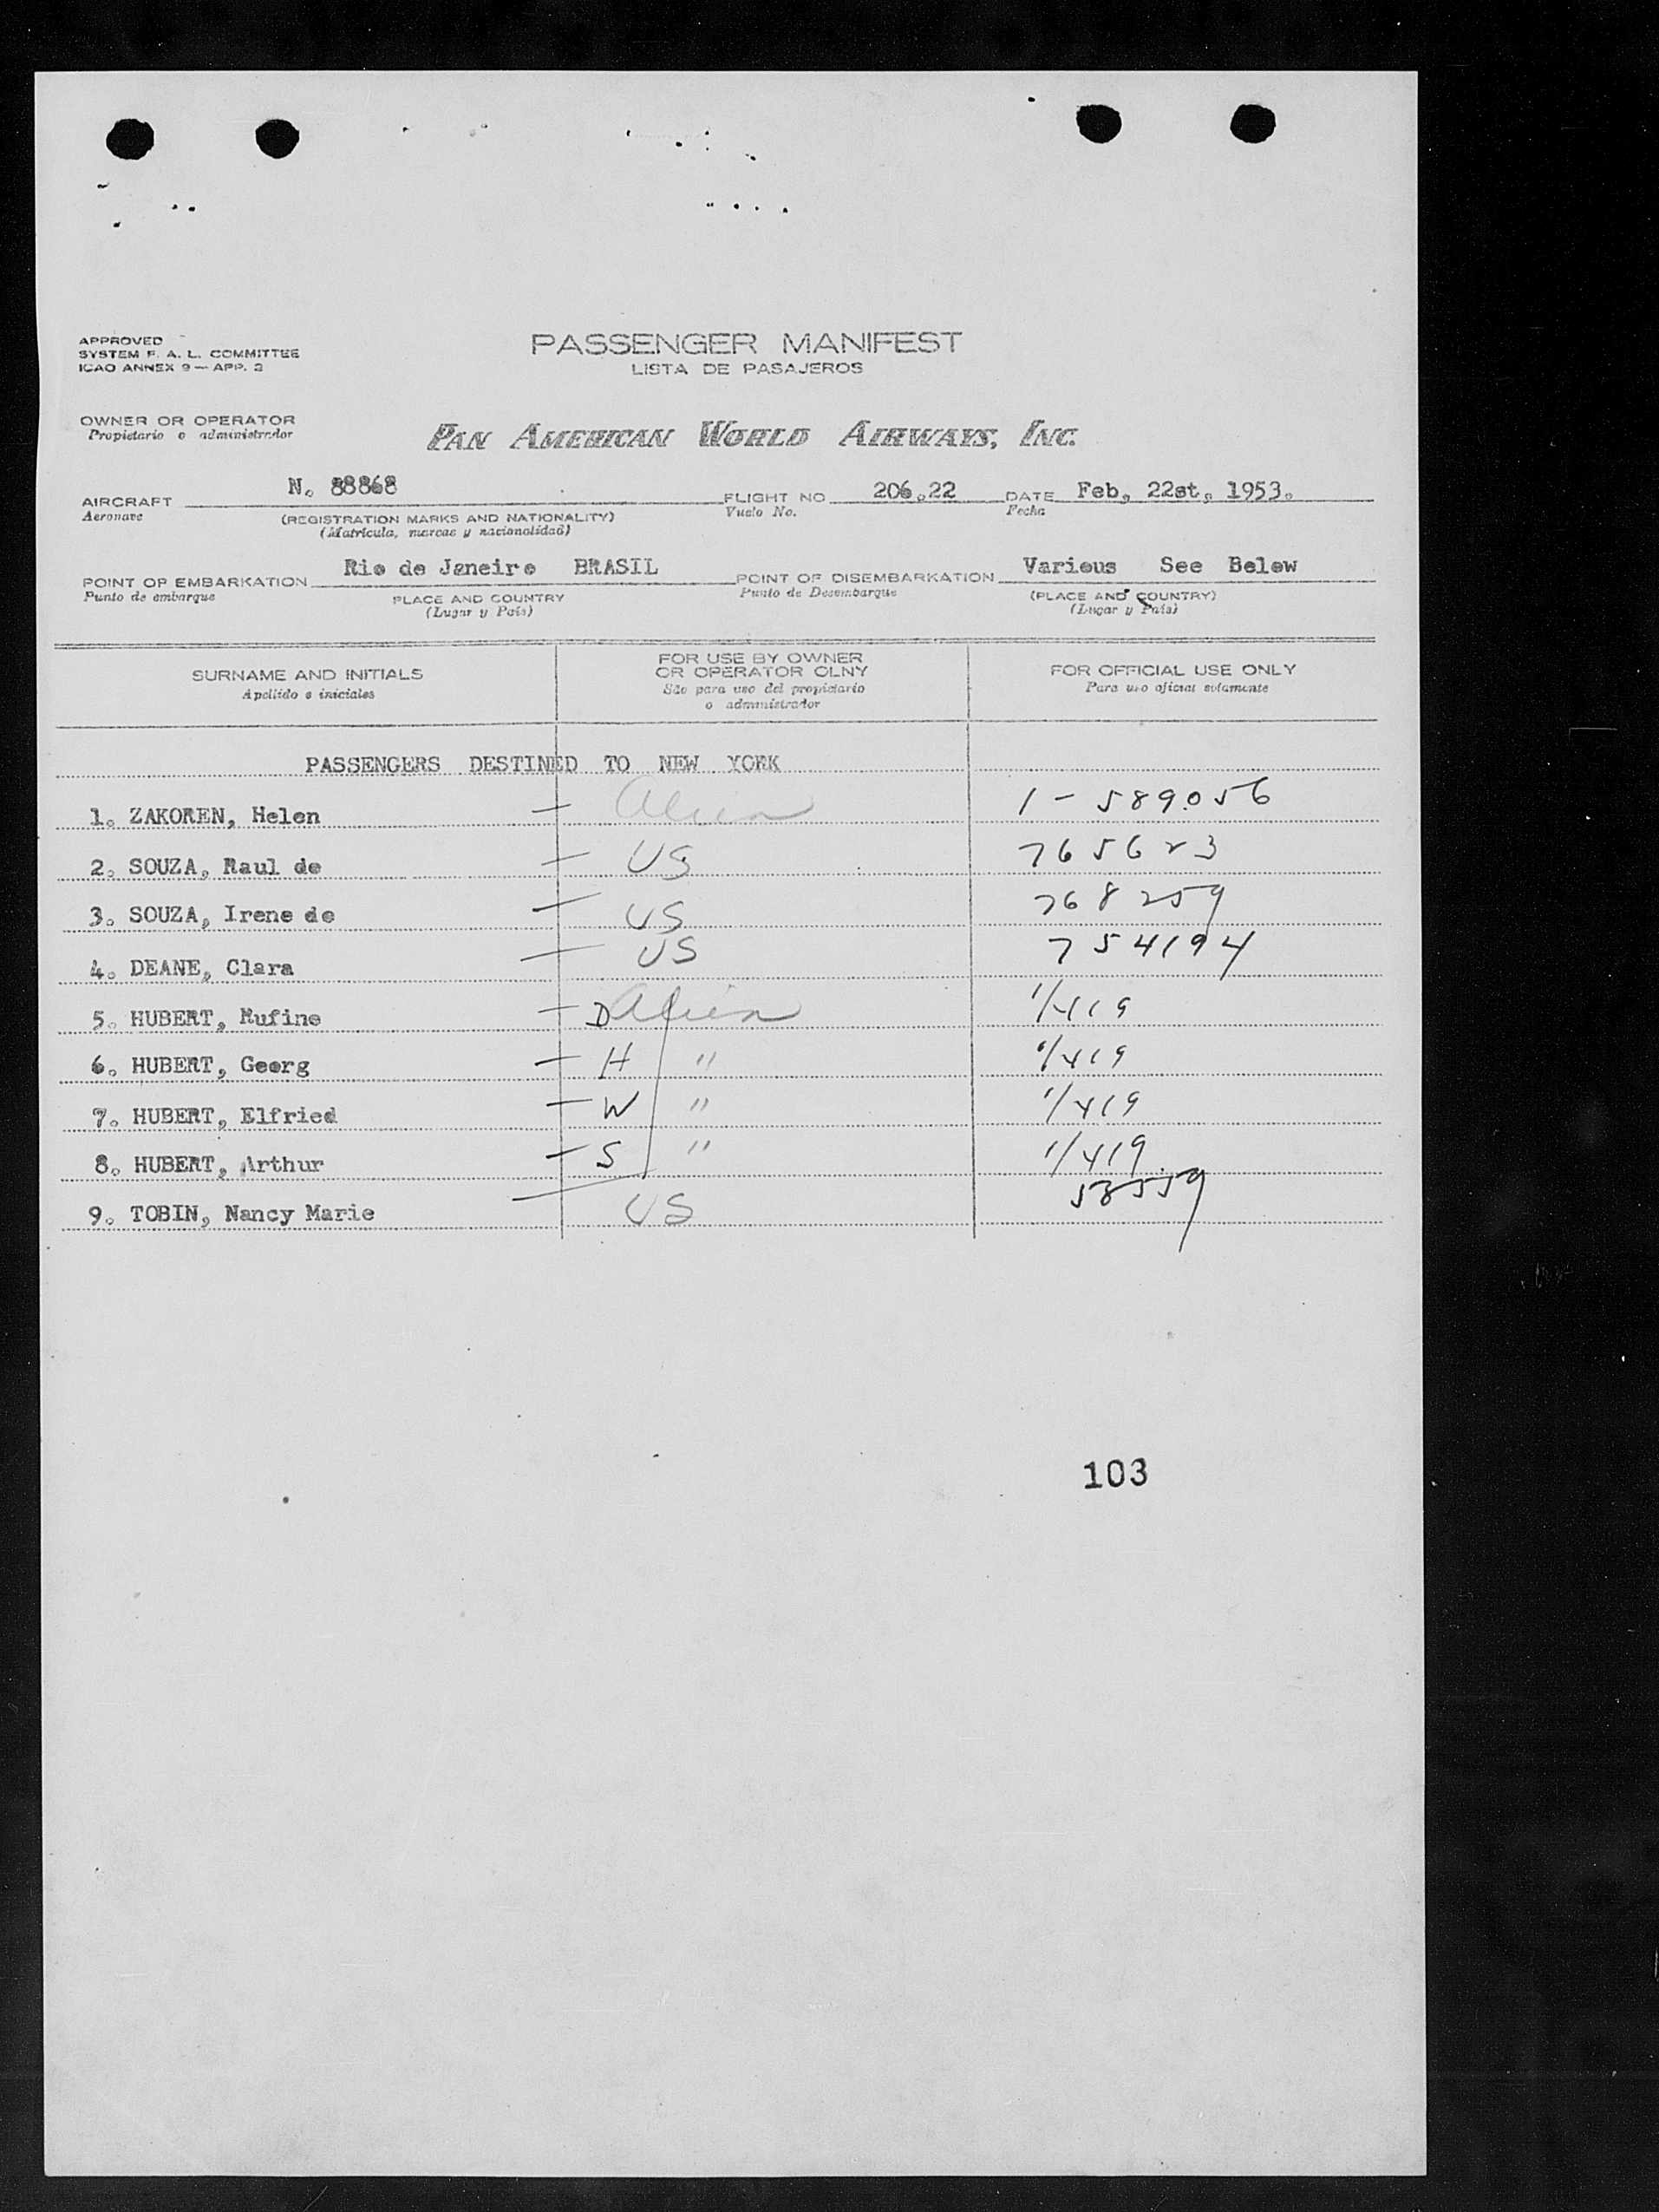 APPROVED
SYSTEM F. A. L. COMMITTEE
ICAO ANNEX 9 — APP. 2
PASSENGER MANIFEST
LISTA DE PASAJEROS
OWNER OR OPERATOR
Propietario o administrador
PAN AMERICAN WORLD AIRWAYS, INC.
AIRCRAFT N. 88868 FLIGHT NO 206.22 DATE Feb, 22st, 1953.
Aeronave (REGISTRATION MARKS AND NATIONALITY) Vuelo No. Fecha
(Matrícula, marcas y nacionalidad)
POINT OF EMBARKATION Rio de Janeiro BRASIL POINT OF DISEMBARKATION Various See Below
Punto de embarque PLACE AND COUNTRY Punto de Desembarque (PLACE AND COUNTRY)
(Lugar y País) (Lugar y País)
SURNAME AND INITIALS
Apellido e iniciales
FOR USE BY OWNER
OR OPERATOR OLNY
Sāo para uso del propietario
o administrador
FOR OFFICIAL USE ONLY
Para uso oficial solamente
PASSENGERS DESTINED TO NEW YORK
1. ZAKOREN, Helen — Alien 1 - 589056
2. SOUZA, Raul de — US 765623
3. SOUZA, Irene de — US 768259
4. DEANE, Clara — US 754194
5. HUBERT, Rufine — D Alien 1/419
6. HUBERT, Georg — H " 1/419
7. HUBERT, Elfried — W " 1/419
8. HUBERT, Arthur — S " 1/419
9. TOBIN, Nancy Marie — US 58559
103